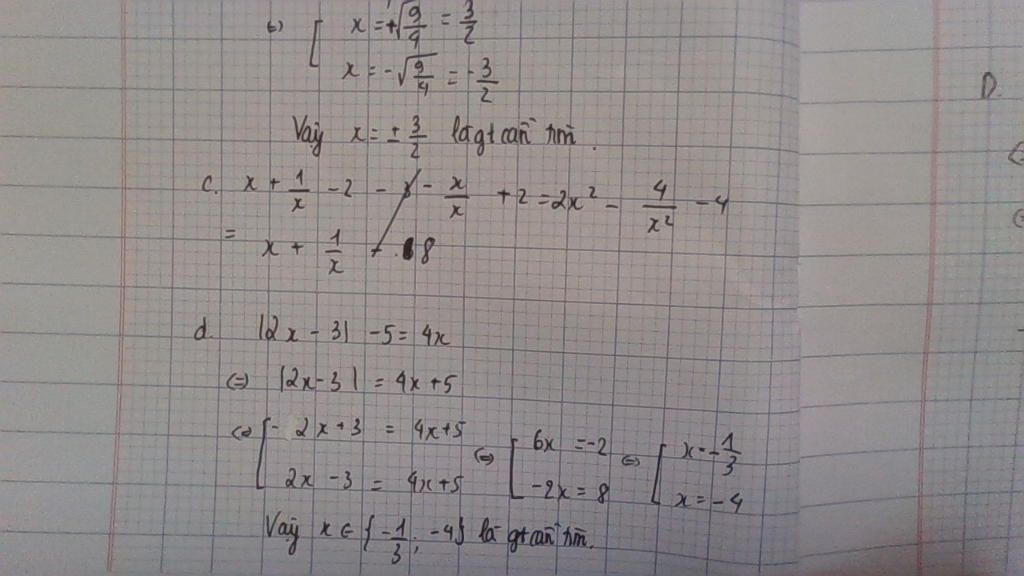 ⇔ [ x = +√(9/4) = 3/2
x = -√(9/4) = -3/2
Vậy x = ± 3/2 là gt cần tìm.
c. x + 1/x - 2 - - x/x + 2 = 2x² - 4/x² - 4
= x + 1/x + 8
d. |2x - 3| - 5 = 4x
⇔ |2x - 3| = 4x + 5
⇔ [ - 2x + 3 = 4x + 5 ⇔ [ 6x = -2 ⇔ [ x = -1/3
2x - 3 = 4x + 5 -2x = 8 x = -4
Vậy x ∈ {-1/3; -4} là gt cần tìm.
D.